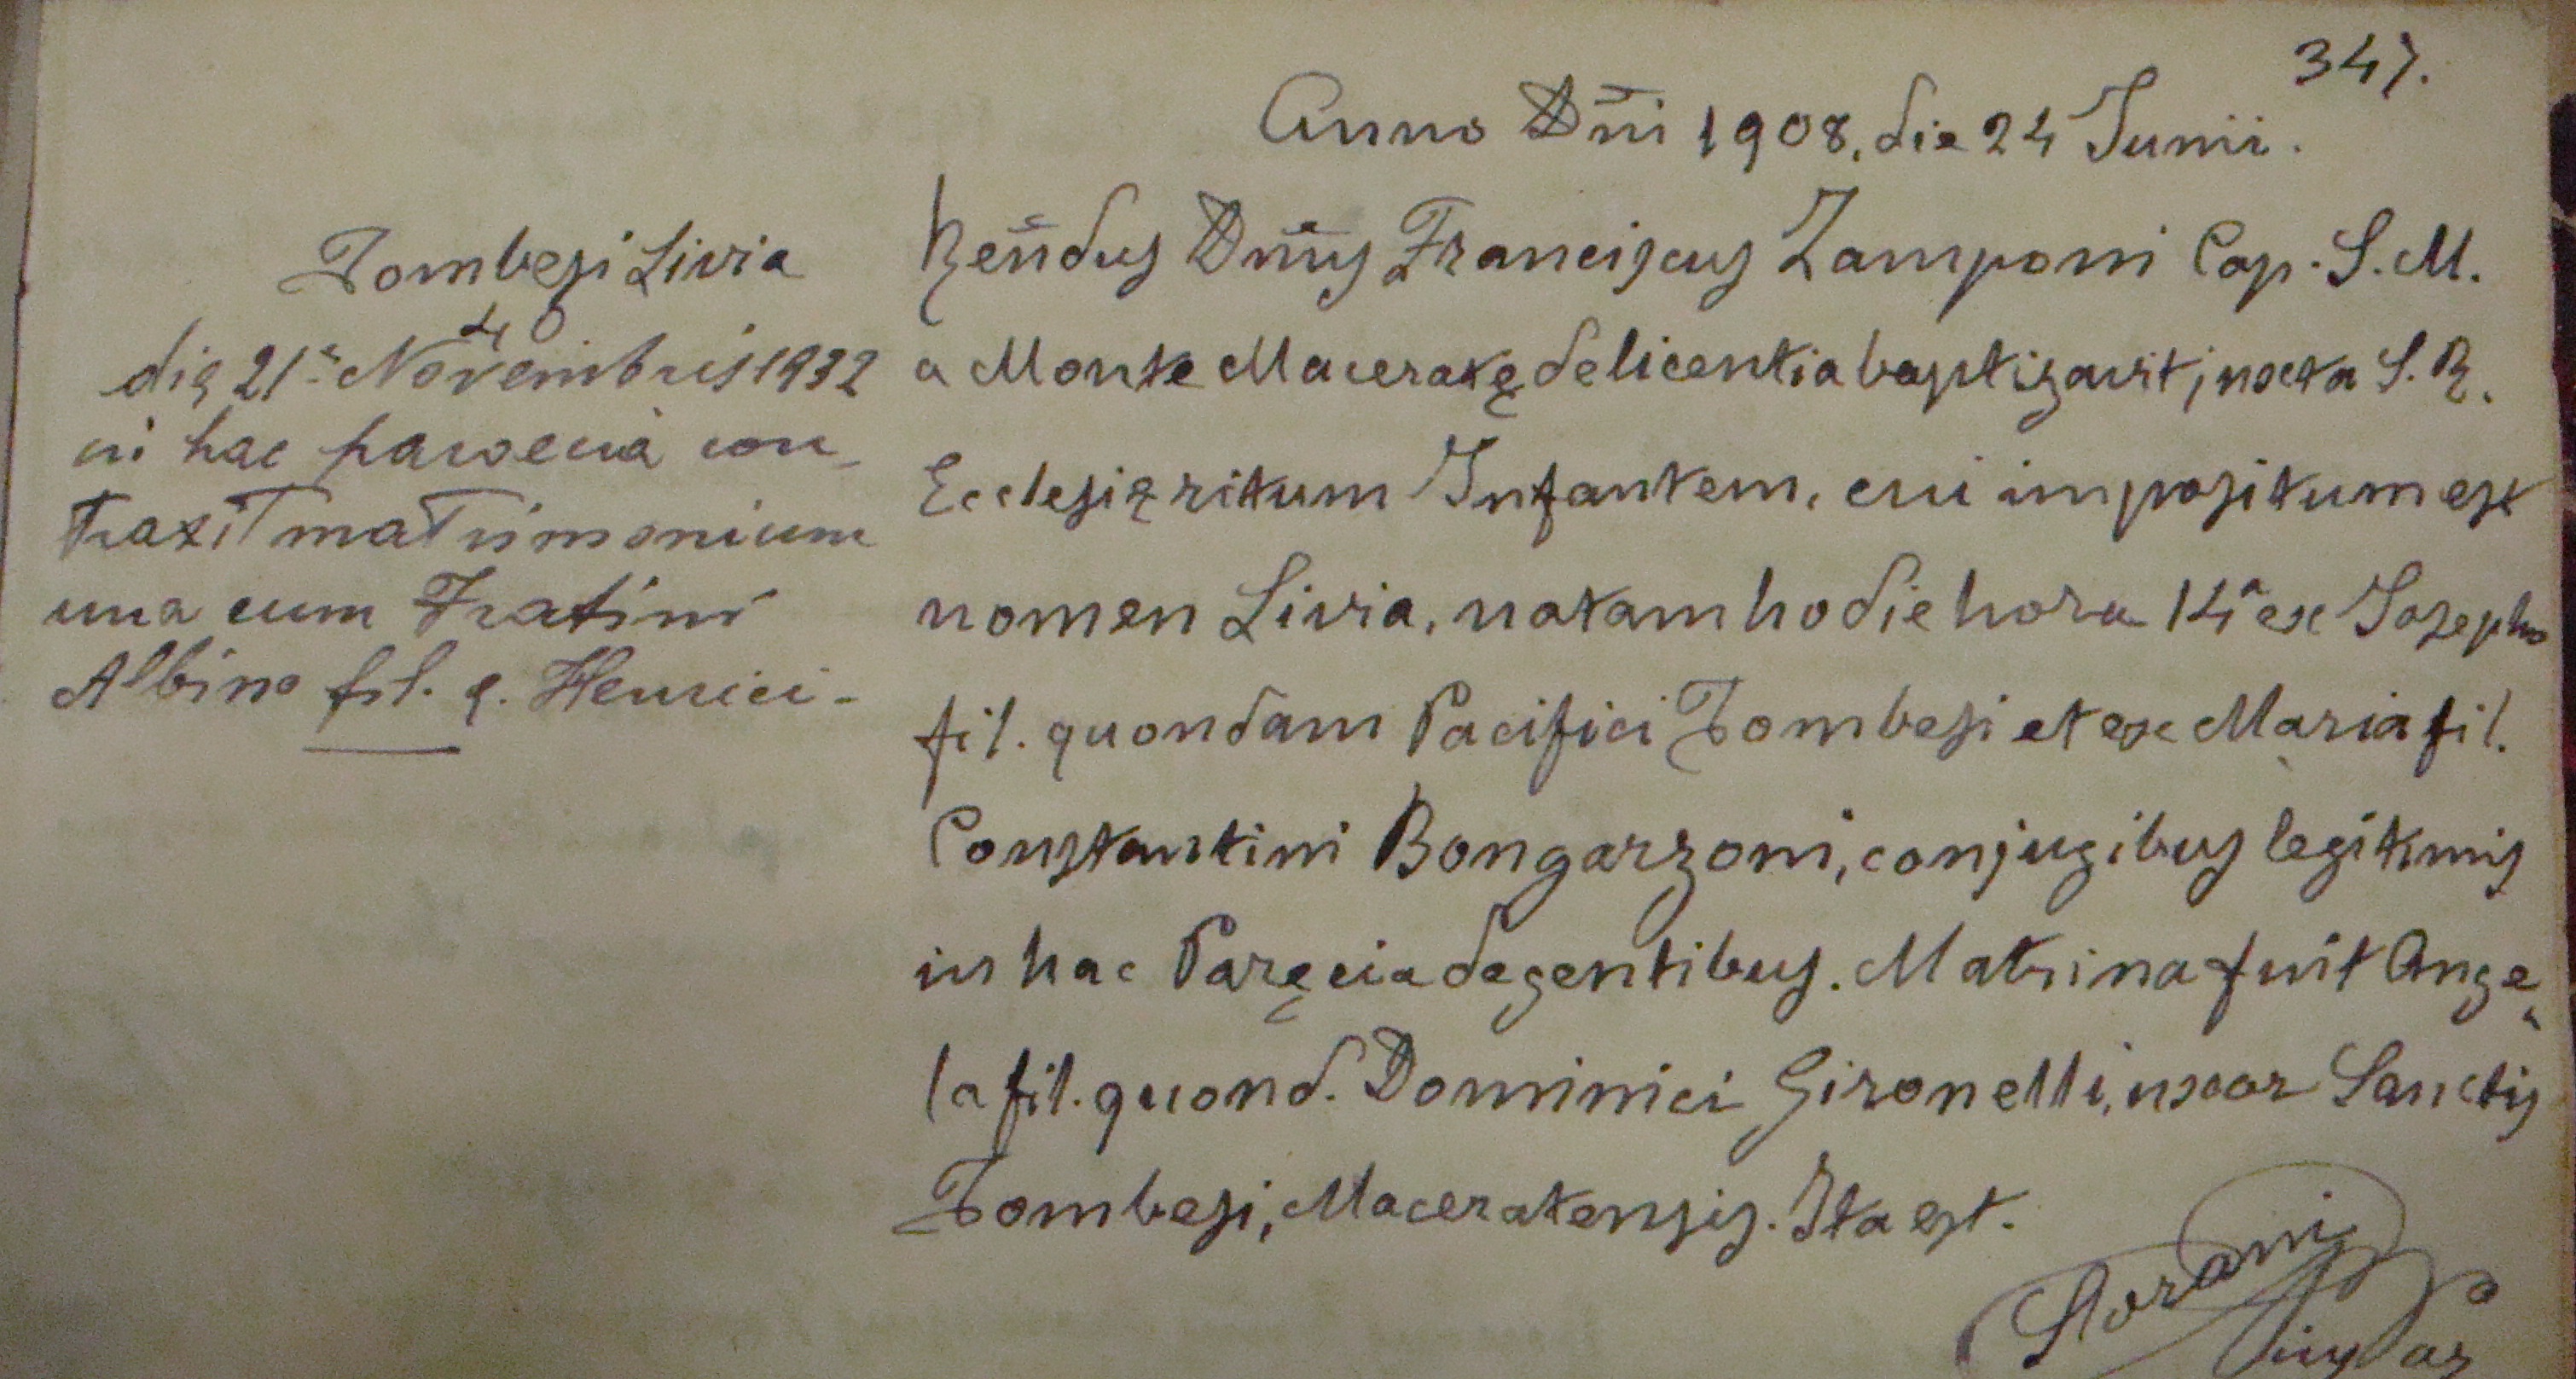 347.
Anno Dn̄i 1908, die 24 Junii.
Tombesi Livia
40
die 21ª Novembris 1932
in hac paroecia con-
traxit matrimonium
una cum Fratini
Albino fil. q. Henrici-
Ren̄dus Dn̄us Franciscus Zamponi Cap. S. M.
a Monte Maceratę de licentia baptizavit, juxta S. R.
Ecclesię ritum Infantem, cui impositum est
nomen Livia, natam hodie hora 14ª ex Josepho
fil. quondam Pacifici Tombesi et ex Maria fil.
Constantini Bongarzoni, conjugibus legitimis
in hac Paręcia degentibus. Matrina fuit Ange„
la fil. quond. Dominici Gironelli, uxor Sanctis
Tombesi, Maceratensis. Ita est.